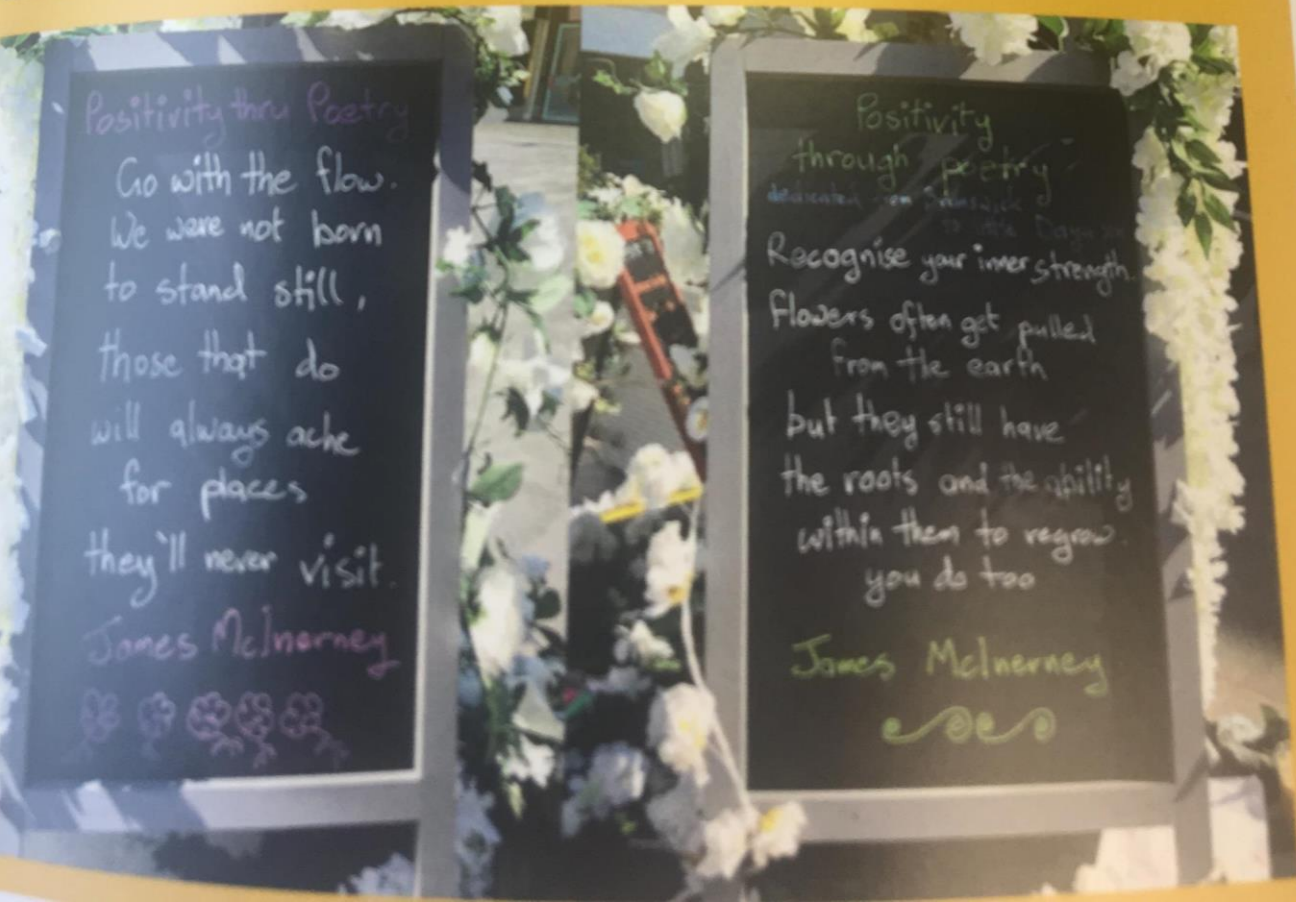 Positivity thru Poetry
Go with the flow.
We were not born
to stand still,
those that do
will always ache
for places
they'll never visit.
James McInerney
Positivity
through poetry
dedicated
to little
Recognise your inner strength.
flowers often get pulled
from the earth
but they still have
the roots and the ability
within them to regrow.
you do too
James McInerney